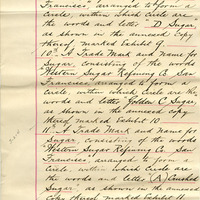 Francisco" arranged to form a
circle, within which circle are
the words and letter "D. Sugar"
as shown on the annexed Copy
thereof marked Exhibit 9.
10" A Trade Mark and Name for
Sugar, consisting of the words
"Western Sugar Refining Co San
Francisco" arranged to form a
circle, within which Circle are the
words and letter "Golden C. Sugar,"
as shown on the annexed copy
thereof marked Exhibit 10
11" A Trade Mark and Name for
Sugar, consisting of the words
"Western Sugar Refining Co. San
Francisco" arranged to form a
circle within which Circle are
the words and letter "(A) Crushed
Sugar" as shown on the annexed
Copy thereof, marked Exhibit 11.